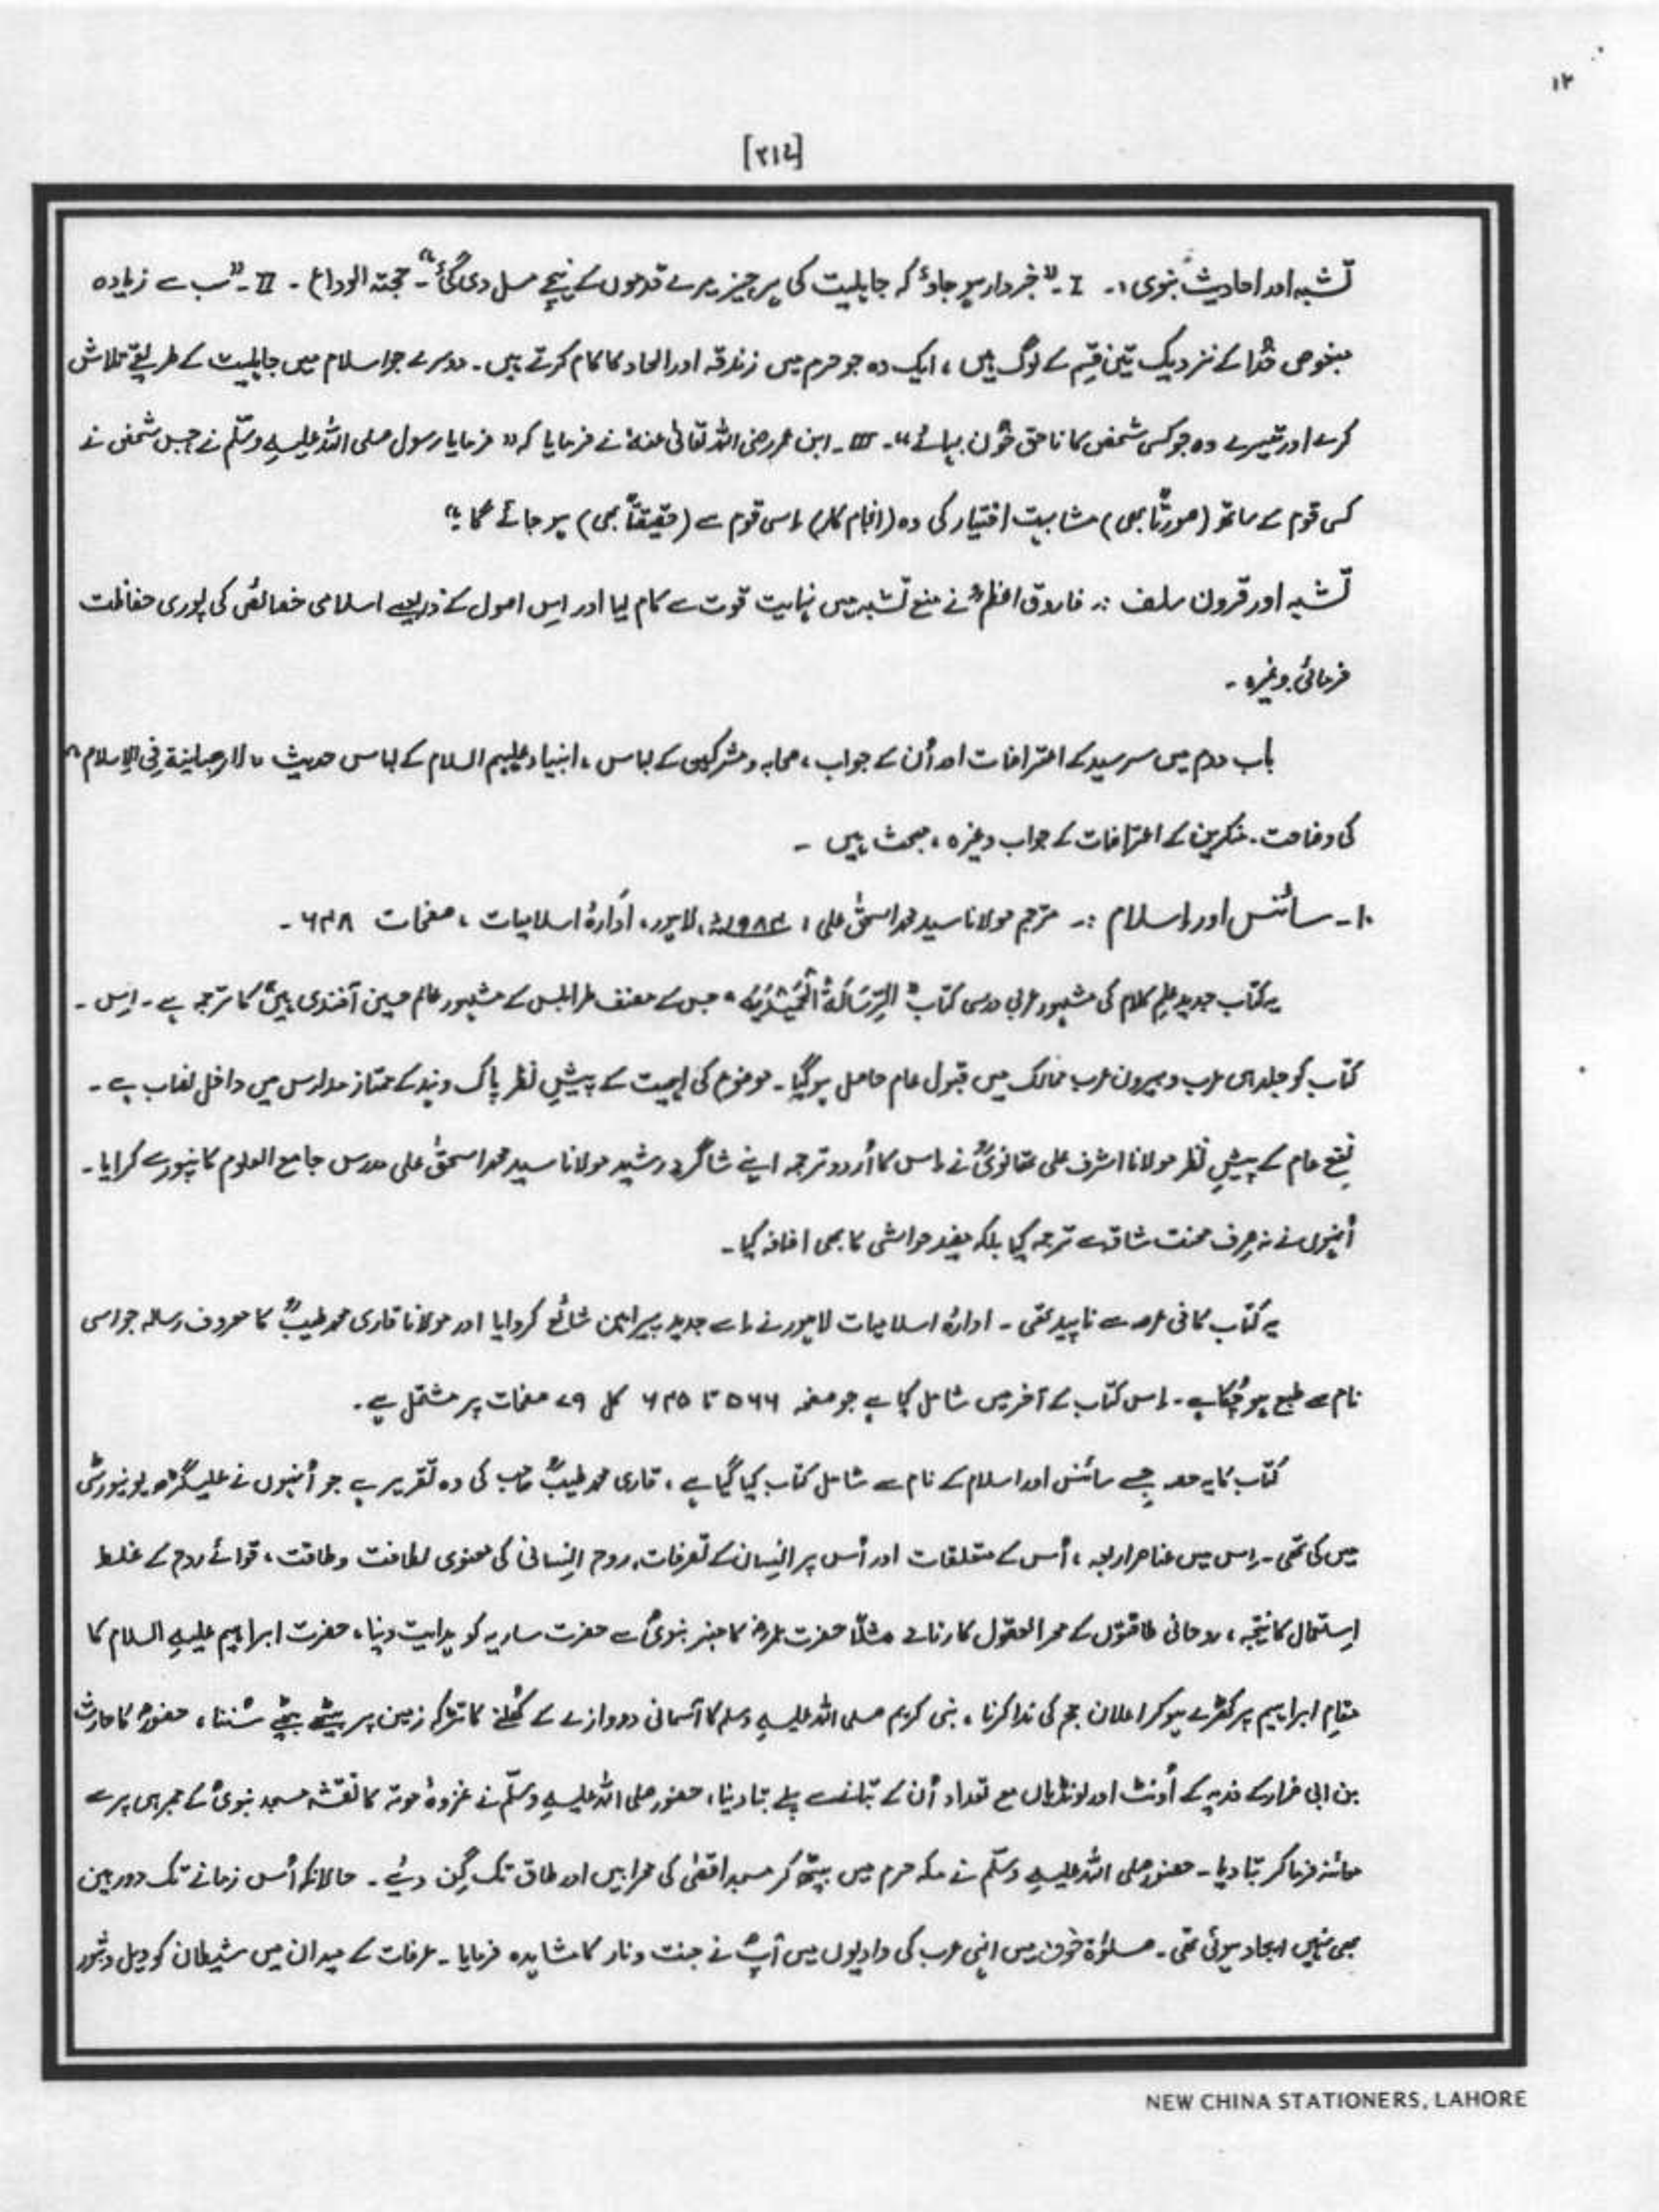 ۱۲
[۲۱۷]
تشبہ اور احادیث نبوی :۔ I ۔ "خبردار ہو جاؤ کہ جاہلیت کی ہر چیز میرے قدموں کے نیچے مسل دی گئی"۔ حجتہ الوداع ۔ II ۔ "سب سے زیادہ
مبغوض خُدا کے نزدیک تین قِسم کے لوگ ہیں ، ایک وہ جو حرم میں زندقہ اور الحاد کا کام کرتے ہیں ۔ دوسرے جو اسلام میں جاہلیت کے طریقے تلاش
کرے اور تیسرے وہ جو کسی شخص کا ناحق خُون بہائے"۔ III ۔ ابن عمر رضی اللہ تعالیٰ عنہٗ نے فرمایا کہ "فرمایا رسول صلی اللہ علیہِ وسلّم نے جس شخص نے
کسی قوم کے ساتھ (صورتاً بھی) مشابہت اختیار کی وہ (انجام کار) اِسی قوم سے (حقیقتاً بھی) ہو جائے گا ۔"
تشبہ اور قرون سلف :۔ فاروق اعظمؓ نے منع تشبہ میں نہایت قوت سے کام لیا اور اِس اصول کے ذریعے اسلامی خصائص کی پوری حفاظت
فرمائی وغیرہ ۔
باب دوم میں سرسید کے اعتراضات اور اُن کے جواب ، صحابہ و مشرکین کے لباس ، انبیاء علیہم السلام کے لباس حدیث "لا رھبانیۃ فِی الاِسلام"
کی وضاحت ۔ منکرین کے اعتراضات کے جواب وغیرہ ، مبحث ہیں ۔
۱۰۔ سائنس اور اِسلام :۔ مترجم مولانا سید محمد اسحٰق علی ، ۱۹۸۴ء ، لاہور ، اَدارۂ اسلامیات ، صفحات ۶۴۸ ۔
یہ کتاب جدید علمِ کلام کی مشہور عربی درسی کتاب "اَلرِّسَالَۃُ الْحَمِیْدِیَّہ" جس کے مصنف طرابلس کے مشہور عالم حسین آفندی ہیںؒ کا ترجمہ ہے ۔ اِس ۔
کتاب کو جلد ہی عرب و بیرون عرب ممالک میں قبول عام حاصل ہو گیا ۔ موضوع کی اہمیت کے پیشِ نظر پاک و ہند کے ممتاز مدارس میں داخل نصاب ہے ۔
نفعِ عام کے پیشِ نظر مولانا اشرف علی تھانویؒ نے اِس کا اُردو ترجمہ اپنے شاگردِ رشید مولانا سید محمد اسحٰق علی مدرس جامع العلوم کانپور سے کرایا ۔
اُنہوں نے نہ صِرف محنت شاقہ سے ترجمہ کیا بلکہ مفید حواشی کا بھی اضافہ کیا ۔
یہ کتاب کافی عرصہ سے ناپید تھی ۔ ادارۂ اسلامیات لاہور نے اِسے جدید پیراہن شائع کروایا اور مولانا قاری محمد طیبؒ کا معروف رسالہ جو اسی
نام سے طبع ہو چُکا ہے ۔ اِس کتاب کے آخر میں شامل کیا ہے جو صفحہ ۵۶۶ تا ۶۴۵ کل ۷۹ صفحات پر مشتمل ہے ۔
کتاب کا یہ حصہ جِسے سائنس اور اسلام کے نام سے شامل کتاب کیا گیا ہے ، قاری محمد طیبؒ صاحب کی وہ تقریر ہے جو اُنہوں نے علیگڑھ یونیورسٹی
میں کی تھی ۔ اِس میں عناصر اربعہ ، اُس کے متعلقات اور اُس پر اِنسان کے تصرفات ، روح اِنسانی کی معنوی لطافت و طاقت ، قوائے روح کے غلط
اِستعمال کا نتیجہ ، روحانی طاقتوں کے محیر العقول کارنامے مثلاً حضرت عمرؓ کا منبر نبویؐ سے حضرت ساریہ کو ہدایت دینا ، حضرت ابراہیم علیہِ السلام کا
مقامِ ابراہیم پر کھڑے ہو کر اعلان حج کی ندا کرنا ، نبی کریم صلی اللہ علیہِ وسلم کا آسمانی دروازے کے کُھلنے کا تڑاکہ زمین پر بیٹھے بیٹھے سُننا ، حضورؐ کا حارث
بن ابی ضرار کے فدیہ کے اُونٹ اور لونڈیاں مع تعداد اُن کے بتانے سے پہلے بتا دینا ، حضور صلی اللہ علیہِ وسلّم نے غزوۂ موتہ کا نقشہ مسجد نبویؐ کے ممبر ہی پر سے
معائنہ فرما کر بتا دیا ۔ حضور صلی اللہ علیہِ وسلّم نے مکہ حرم میں بیٹھ کر مسجد اقصٰی کی محرابیں اور طاق تک گِن دیئے ۔ حالانکہ اُس زمانے تک دوربین
بھی نہیں ایجاد ہوئی تھی ۔ صلوٰۃ خوف میں اپنی عرب کی وادیوں میں آپؐ نے جنت و نار کا مشاہدہ فرمایا ۔ عرفات کے میدان میں شیطان کو ویل و ثبور
NEW CHINA STATIONERS, LAHORE